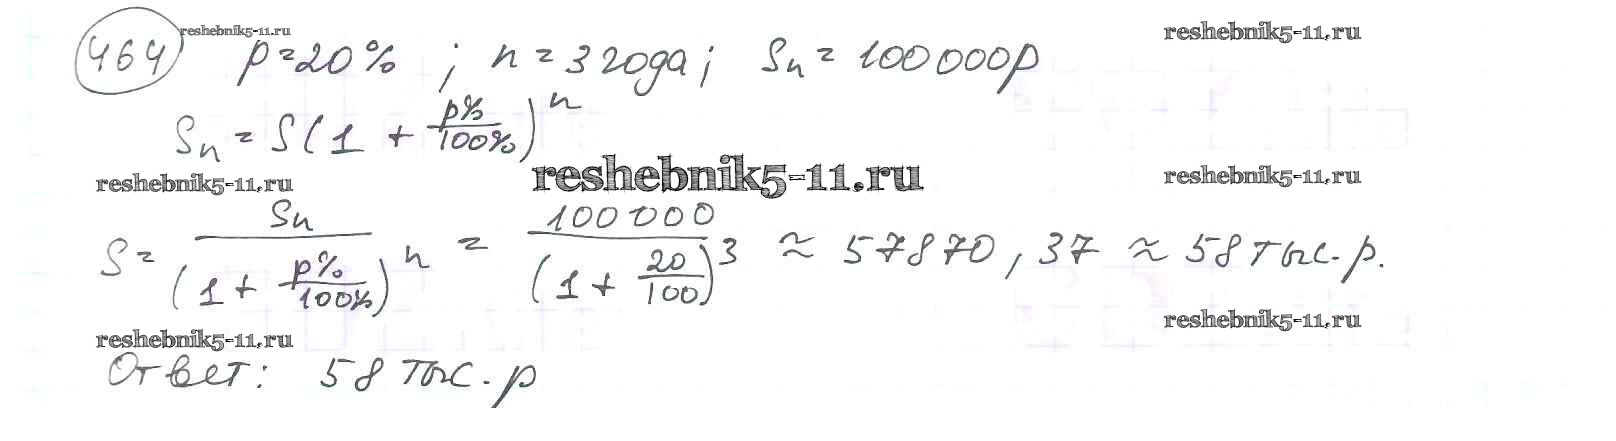 reshebnik5-11.ru reshebnik5-11.ru
464 p=20% ; n=3 года; Sn=100000р
Sn=S(1+p%/100%)^n
reshebnik5-11.ru reshebnik5-11.ru reshebnik5-11.ru
S=Sn/(1+p%/100%)^n=100000/(1+20/100)^3≈57870,37≈58 тыс.р.
reshebnik5-11.ru reshebnik5-11.ru
Ответ: 58 тыс.р